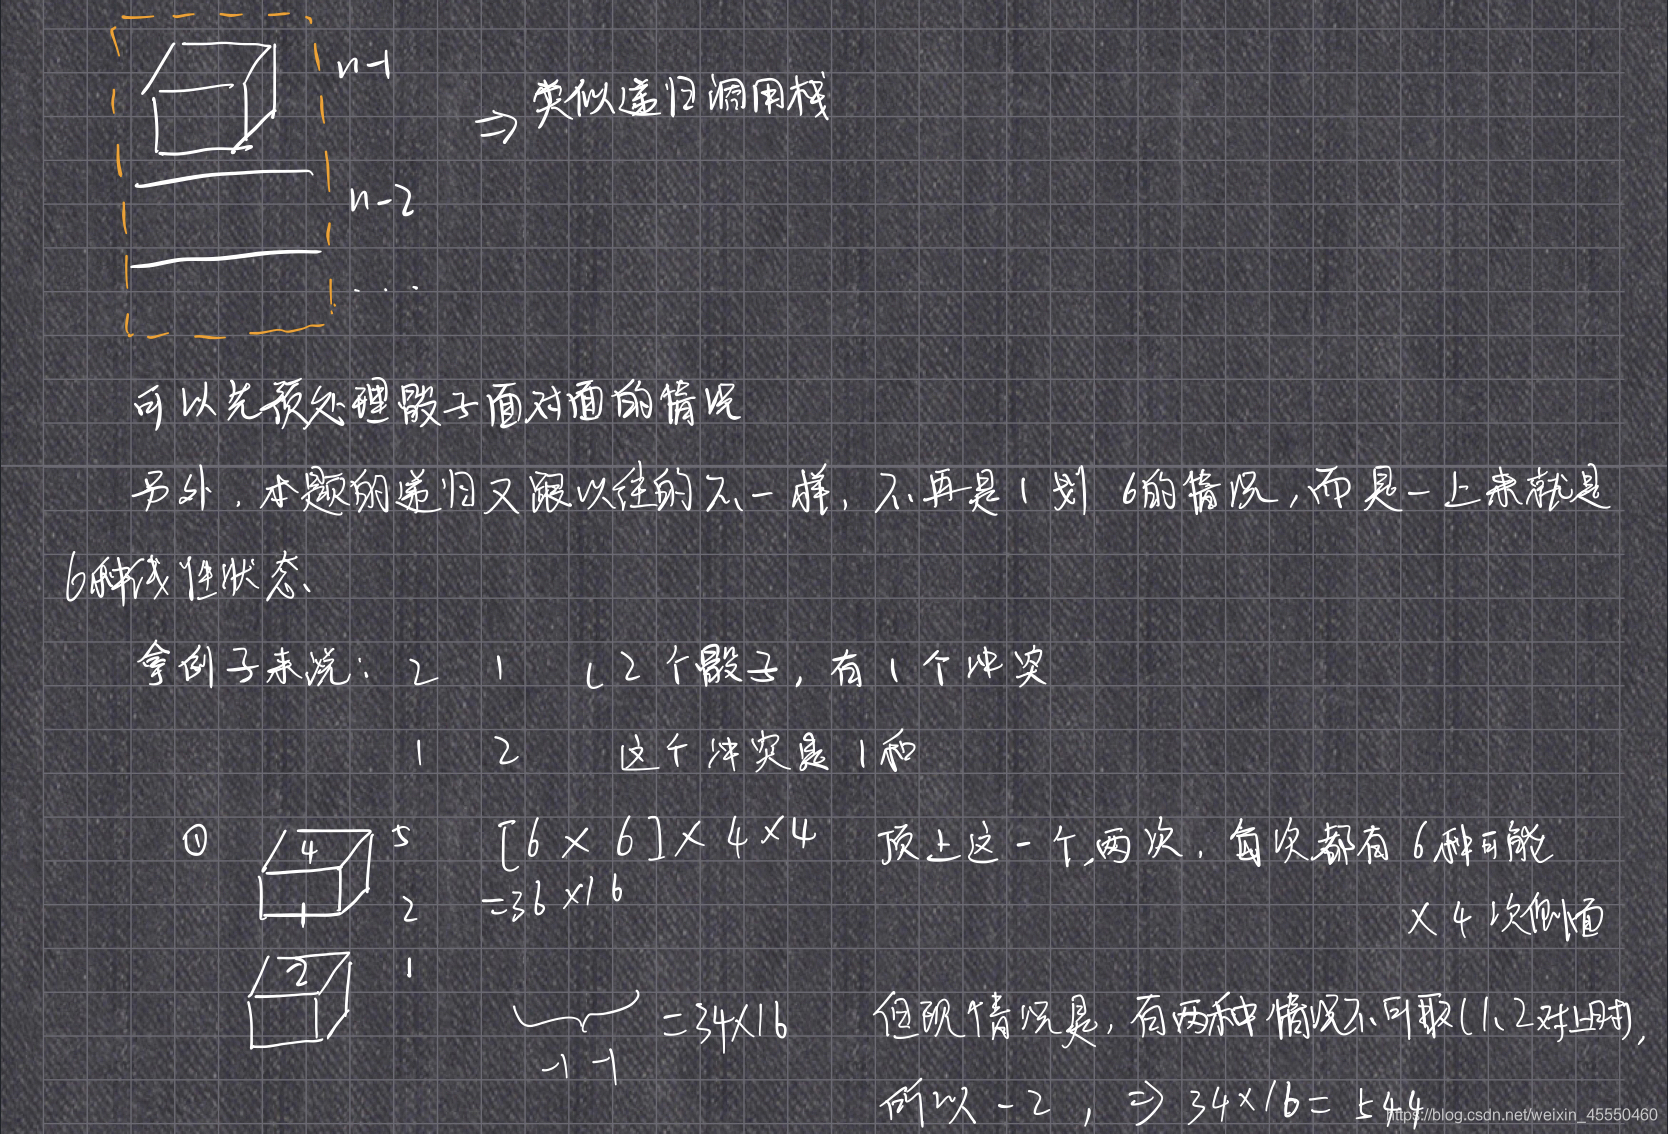 n-1
⇒ 类似递归调用栈
n-2
...
可以先预处理骰子面对面的情况
另外，本题的递归又跟以往的不一样，不再是1划6的情况，而是一上来就是
6种线性状态、
拿例子来说： 2 1 (2个骰子，有1个冲突
1 2 这个冲突是1和
① 4 5 [6×6]×4×4 顶上这一个,两次，每次都有6种可能
1 2 =36×16 ×4次侧面
2 1
-1 -1 =34×16 但现情况是，有两种情况不可取(1、2对上时)，
所以-2，⇒34×16=544
https://blog.csdn.net/weixin_45550460